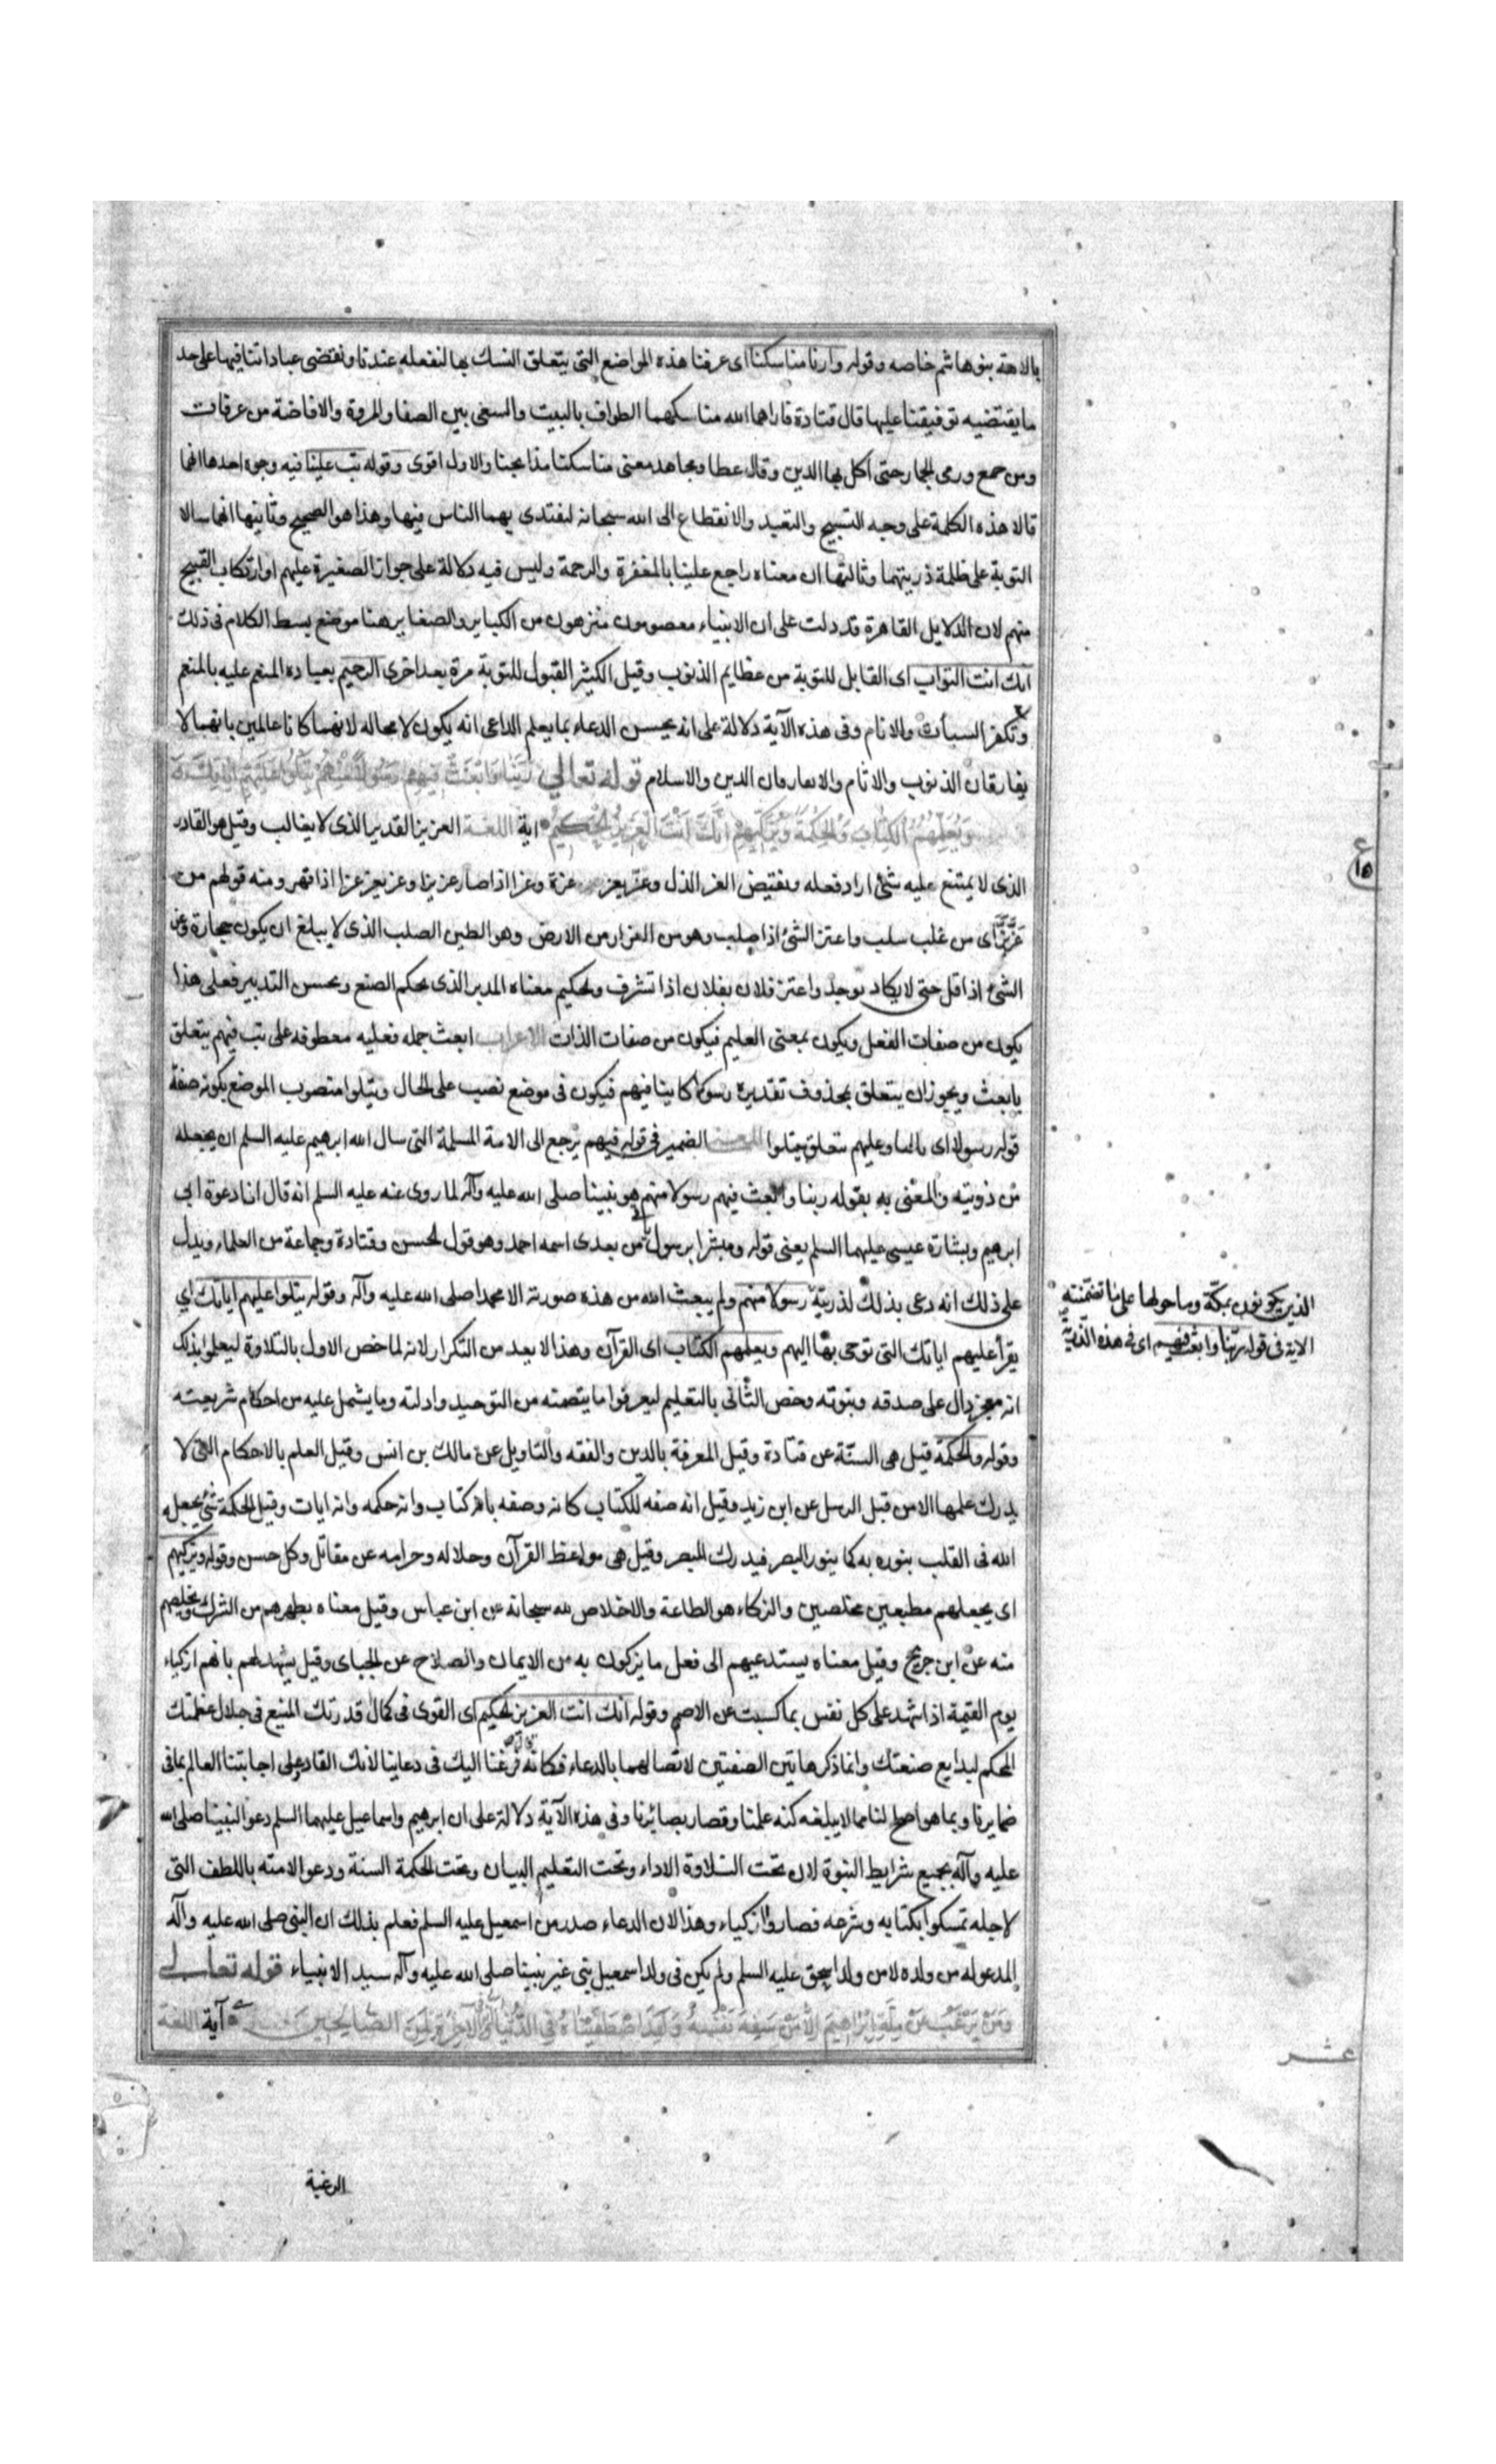 بالامة بنو هاشم خاصه وقوله وارنا مناسكنا اى عرفنا هذه المواضع التى يتعلق النسك بها لنفعله عندنا ونقتضى عباداتنا فيها على حد
ما يقتضيه توفيقنا عليها قال قتادة فاراهما الله مناسكهما الطواف بالبيت والسعى بين الصفا والمروة والافاضة من عرفات
ومن جمع ورمى الجمار حتى اكمل بها الدين وقال عطا ومجاهد معنى مناسكنا مذابحنا والاول اقوى وقوله تب علينا فيه وجوه احدها انهما
قالا هذه الكلمة على وجه التسبيح والتعبد والانقطاع الى الله سبحانه ليقتدى بهما الناس فيها وهذا هو الصحيح وثانيها انهما سالا
التوبة على ظلمة ذريتهما وثالثها ان معناه راجع علينا بالمغفرة والرحمة وليس فيه دلالة على جواز الصغيرة عليهم او ارتكاب القبيح
منهم لان الدلايل القاهرة قد دلت على ان الانبياء معصومون منزهون من الكباير والصغاير هنا موضع بسط الكلام فى ذلك
انك انت التواب اى القابل للتوبة من عظايم الذنوب وقيل الكثير القبول للتوبة مرة بعد اخرى الرحيم بعباده المنعم عليه بالمنعم
وتكفر السيأت والاثام وفى هذه الآية دلالة على انه يحسن الدعاء بما يعلم الداعى انه يكون لا محاله لانهما كانا عالمين بانهما لا
يفارقان الذنوب والاثام والا يعارفان الدين والاسلام قوله تعالى رَبَّنَا وَابْعَثْ فِيهِمْ رَسُولًا مِنْهُمْ يَتْلُو عَلَيْهِمْ اٰيَاتِكَ
وَيُعَلِّمُهُمُ الْكِتَابَ وَالْحِكْمَةَ وَيُزَكِّيهِمْ اِنَّكَ اَنْتَ الْعَزِيزُ الْحَكِيمُ اية اللغة العزيز القدير الذى لا يغالب وقيل هو القادر
الذى لا يمتنع عليه شئ اراد فعله ونقيض العز الذل وعز يعز عزة وعزا اذا صار عزيزا وعز يعز عزا اذا قهر ومنه قولهم من
عَزَّ بَزَّ اى من غلب سلب واعتز الشئ اذا صلب وهو من العزاز من الارض وهو الطين الصلب الذى لا يبلغ ان يكون حجارة وعز
الشئ اذا قل حتى لا يكاد يوجد واعتز فلان بفلان اذا تشرف والحكيم معناه المدبر الذى يحكم الصنع ويحسن التدبير فعلى هذا
يكون من صفات الفعل ويكون بمعنى العليم فيكون من صفات الذات الاعراب ابعث جمله فعليه معطوفه على تب فيهم يتعلق
بابعث ويجوز ان يتعلق بمحذوف تقديره رسولا كاينا فيهم فيكون فى موضع نصب على الحال ويتلوا منصوب الموضع بكونه صفة
قوله رسولا اى تاليا وعليهم يتعلق بيتلوا المعنى الضمير فى قوله فيهم يرجع الى الامة المسلمة التى سال الله ابرهيم عليه السلم ان يجعله
من ذريته والمعنى به بقوله ربنا وابعث فيهم رسولا منهم هو نبينا صلى الله عليه وآله لما روى عنه عليه السلم انه قال انا دعوة ابى
ابرهيم وبشارة عيسى عليهما السلم يعنى قوله ومبشرا برسول يأتى من بعدى اسمه احمد وهو قول الحسن وقتادة وجماعة من العلماء ويدل
على ذلك انه دعى بذلك لذريّته رسولا منهم ولم يبعث الله من هذه صورته الا محمدا صلى الله عليه وآله وقوله يتلوا عليهم اياتك اي
يقرأ عليهم اياتك التى توحى بها اليهم ويعلمهم الكتاب اى القرآن وهذا لا يعد من التكرار لانه لما خص الاول بالتلاوة ليعلموا بذلك
انه معجز دال على صدقه ونبوته وخص الثانى بالتعليم ليعرفوا ما يتضمنه من التوحيد وادلته وما يشمل عليه من احكام شريعته
وقوله والحكمة قيل هى السنّة عن قتادة وقيل المعرفة بالدين والفقه والتاويل عن مالك بن انس وقيل العلم بالاحكام التى لا
يدرك علمها الا من قبل الرسل عن ابن زيد وقيل انه صفه للكتاب كانه وصفه بانه كتاب وانه حكمه وانه ايات وقيل الحكمة شئ يجعله
الله فى القلب ينوره به كما ينور البصر فيدرك المبصر وقيل هى مواعظ القرآن وحلاله وحرامه عن مقاتل وكل حسن وقوله ويزكيهم
اى يجعلهم مطيعين مخلصين والزكاء هو الطاعة والاخلاص لله سبحانه عن ابن عباس وقيل معناه يطهرهم من الشرك ويخلصهم
منه عن ابن جريج وقيل معناه يستدعيهم الى فعل ما يزكون به من الايمان والصلاح عن الجباى وقيل يشهد لهم بانهم ازكياء
يوم القيمة اذا شهد على كل نفس بما كسبت عن الاصم وقوله انك انت العزيز الحكيم اى القوى فى كمال قدرتك المنيع فى جلال عظمتك
المحكم لبدايع صنعتك وانما ذكر هاتين الصفتين لاتصالهما بالدعاء فكانه فرغنا اليك فى دعاينا لانك القادر على اجابتنا العالم بما فى
ضمايرنا وبما هو اصلح لنا مما لا يبلغه كنه علمنا وقصار بصائرنا وفى هذه الآية دلالة على ان ابرهيم واسماعيل عليهما السلم دعوا لنبينا صلى الله
عليه وآله بجميع شرايط النبوة لان تحت التلاوة الاداء وتحت التعليم البيان وتحت الحكمة السنة ودعوا لامته باللطف التى
لاجله تمسكوا بكتابه وشرعه فصاروا ازكياء وهذا لان الدعاء صدر من اسمعيل عليه السلم فعلم بذلك ان النبى صلى الله عليه وآله
المدعو له من ولده لا من ولد اسحق عليه السلم ولم يكن فى ولد اسمعيل نبى غير نبينا صلى الله عليه وآله سيد الانبياء قوله تعالى
وَمَنْ يَرْغَبُ عَنْ مِلَّةِ اِبْرَاهِيمَ اِلَّا مَنْ سَفِهَ نَفْسَهُ وَلَقَدِ اصْطَفَيْنَاهُ فِي الدُّنْيَا وَاِنَّهُ فِي الْاٰخِرَةِ لَمِنَ الصَّالِحِينَ آية اللغة
الرغبة
الذين يكونون بمكّة وما حولها على ما تضمّنته
الاية فى قوله ربّنا وابعث فيهم اى فى هذه الذرّيّة
ع
١٥
عشر